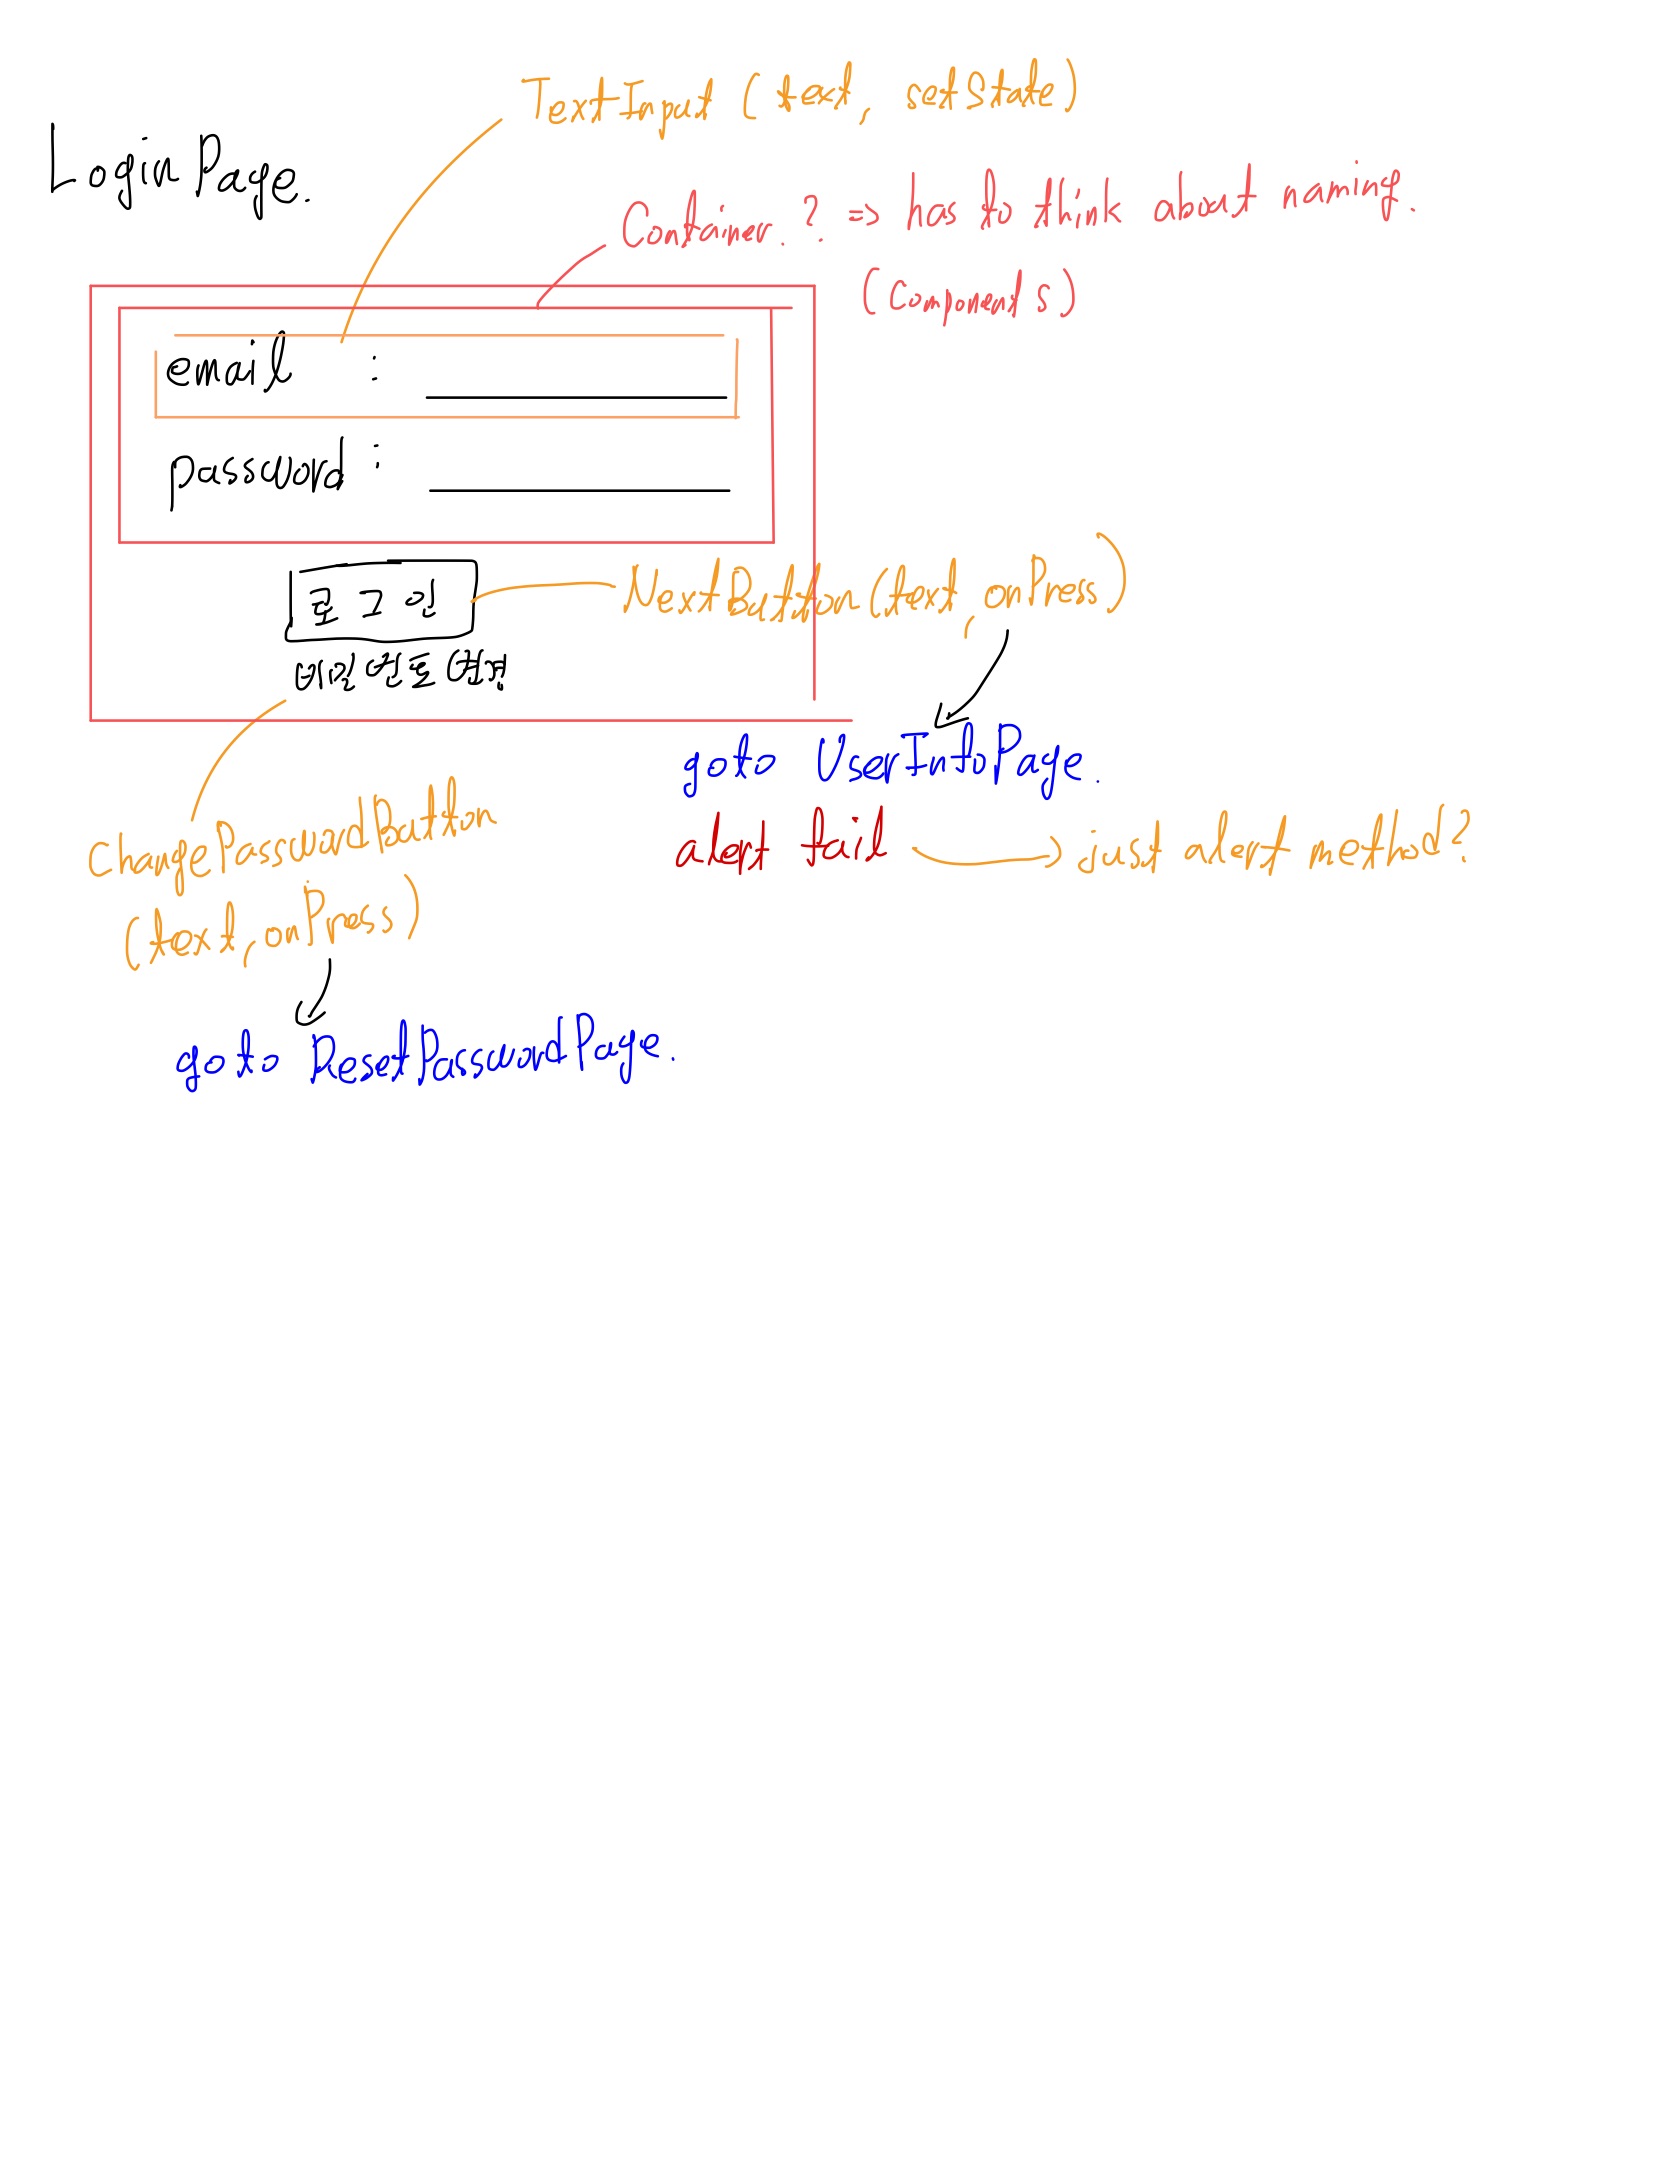 TextInput (text, setState)
LoginPage.
Container.? => has to think about naming.
(Components)
email :
password :
로그인
NextButton(text, onPress)
비밀번호 변경
goto UserInfoPage.
alert fail → just alert method?
ChangePasswordButton
(text, onPress)
goto ResetPasswordPage.